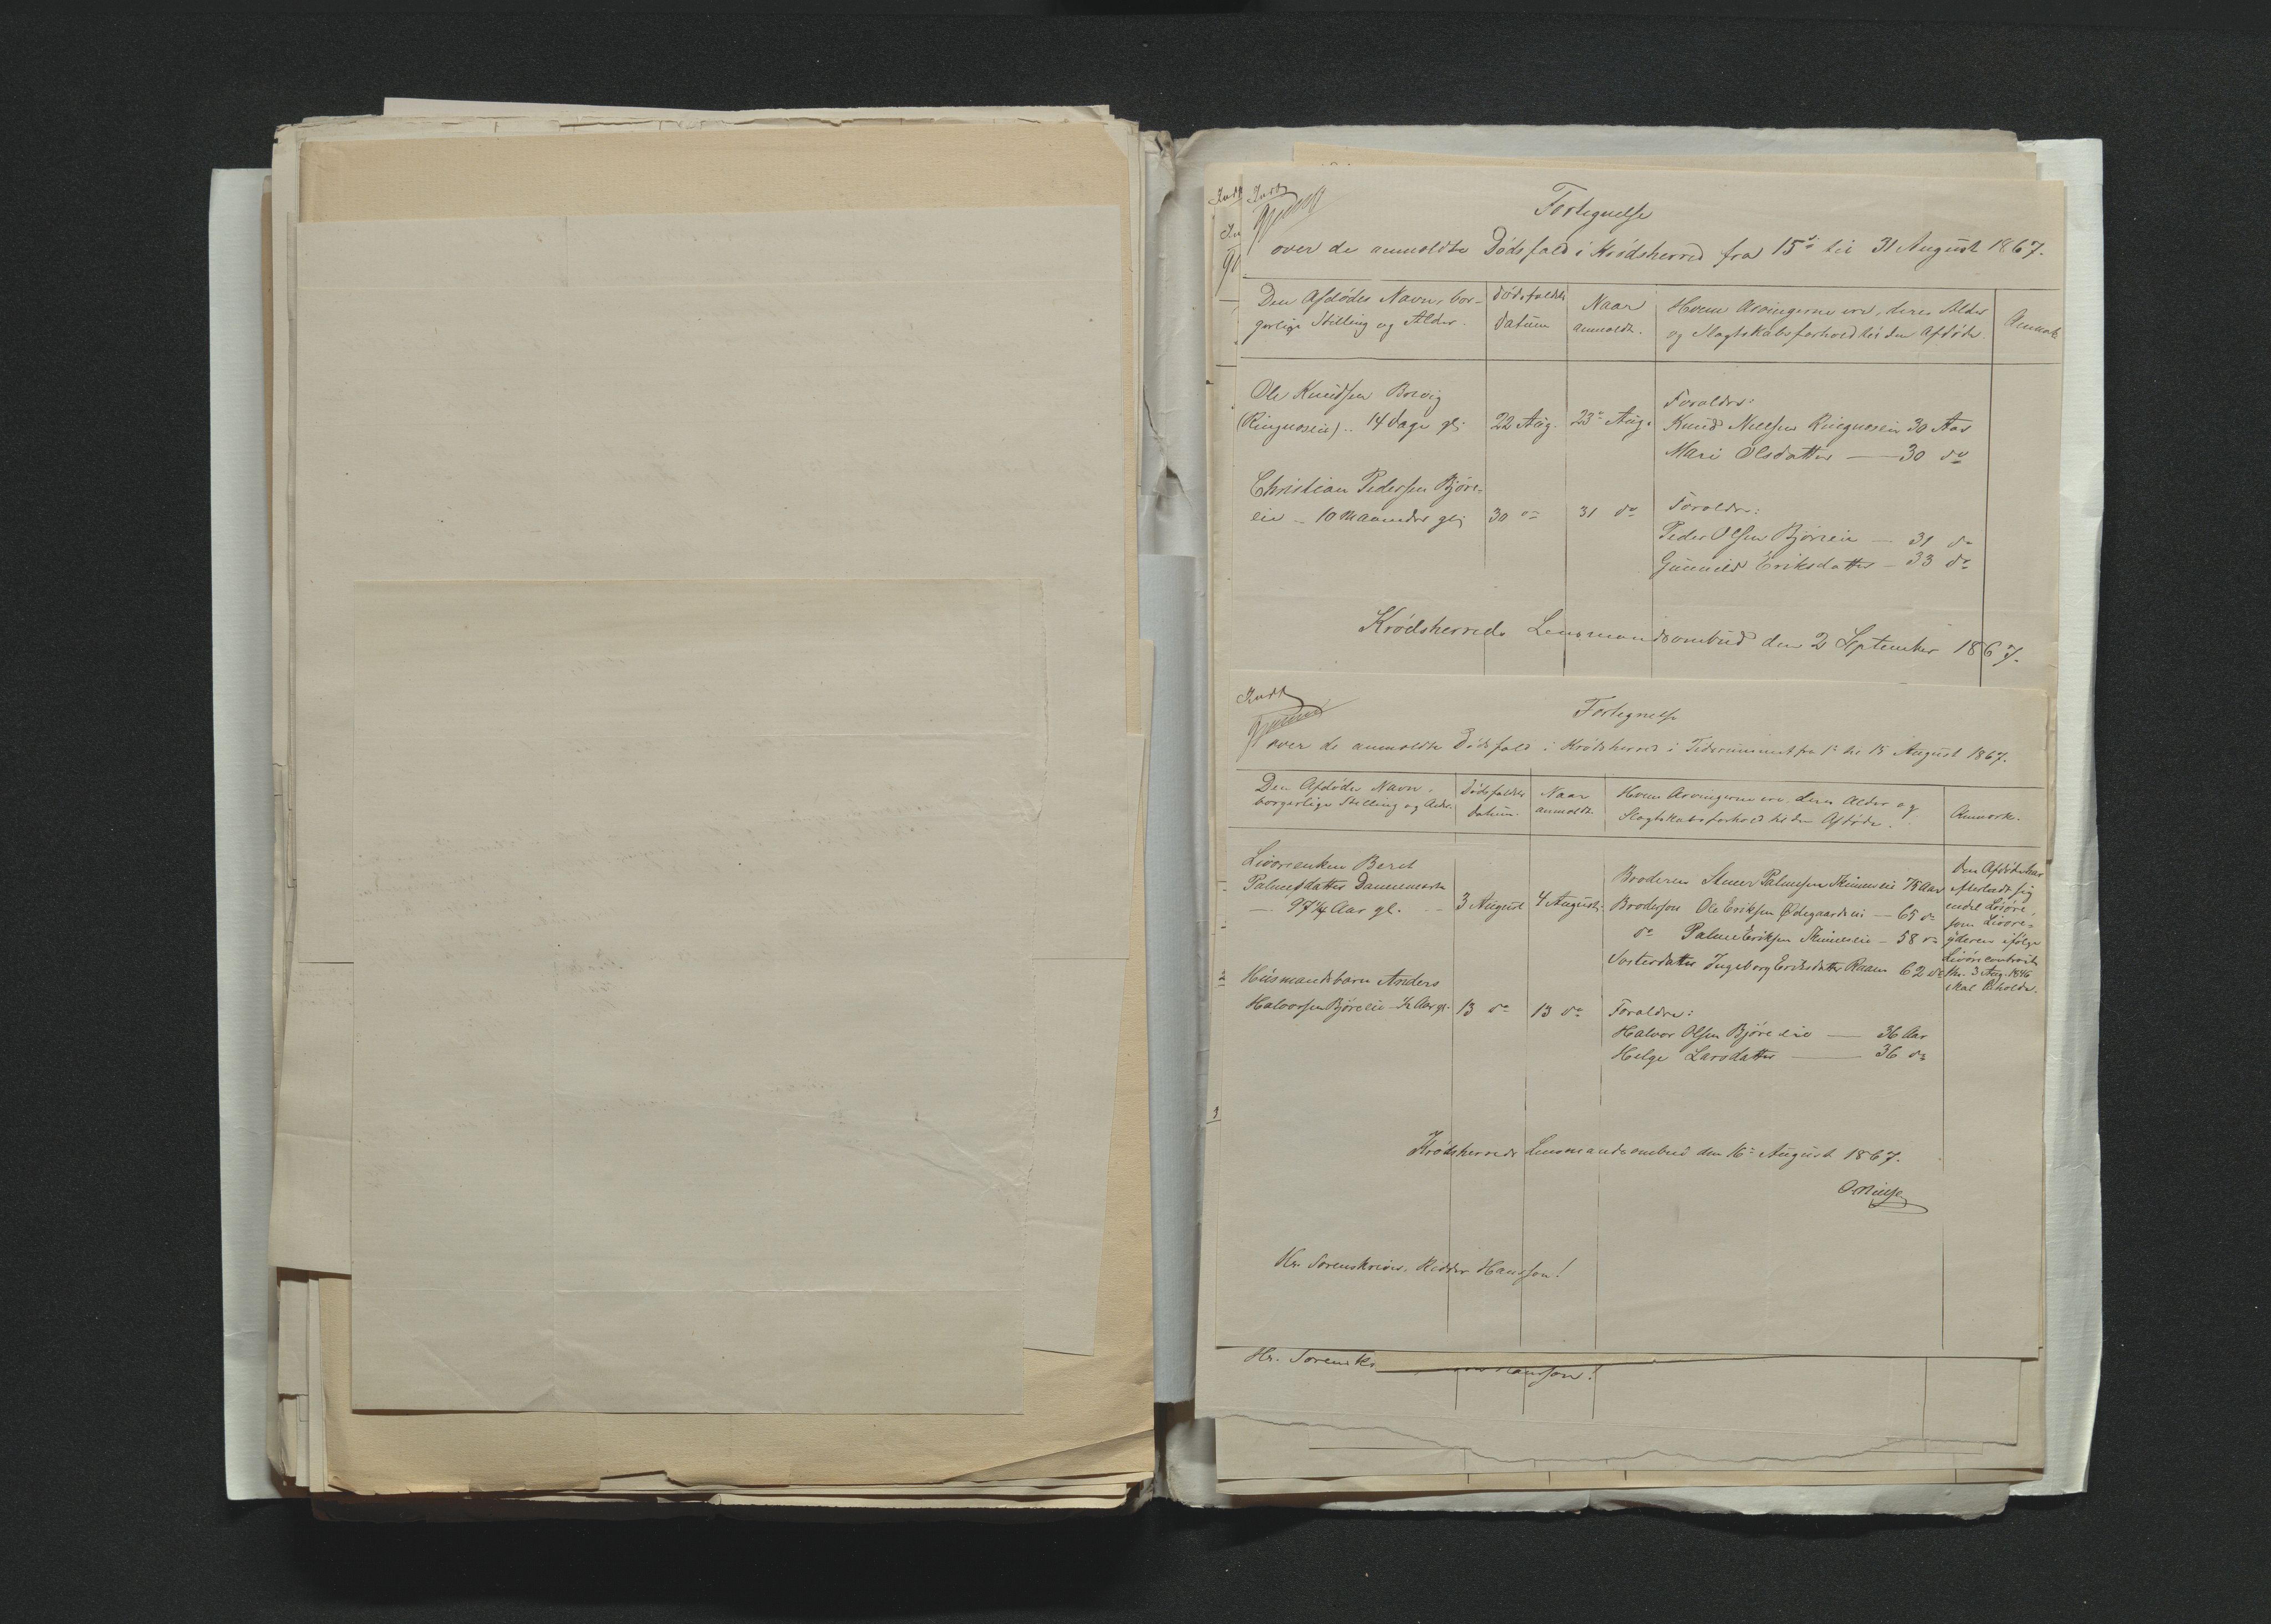 Indf
Fortegnelse
over de anmeldte Dødsfald i Krødsherred fra 15de til 31 August 1867.
Den Afdødes Navn, bor-
gerlige Stilling og Alder.
Dødsfaldets
Datum
Naar
anmeldt.
Hvem Arvingerne ere, deres Alder
og Slægtskabsforhold til den Afdøde.
Anmærk.
Ole Knudsen Borvig
(Ringneseie) .. 14 Dage gl:
22 Aug.
23de Aug.
Forældre:
Knud Nielsen Ringneseie 30 Aar
Mari Olsdatter — 30 do
Christian Pedersen Bjøre-
eie — 10 Maaneder gl:
30 do
31 do
Forældre:
Peder Olsen Bjøreeie — 31 do
Gunnild Eriksdatter — 33 do
Krødsherreds Lensmandsombud den 2 September 1867.
Indf
Fortegnelse
over de anmeldte Dødsfald i Krødsherred i Tidsrummet fra 1de til 15 August 1867.
Den Afdødes Navn,
borgerlige Stilling og Alder.
Dødsfaldets
Datum.
Naar
anmeldt.
Hvem Arvingerne ere, deres Alder og
Slægtskabsforhold til den Afdøde.
Anmærk.
Livøreenken Beret
Palmesdatter
— 97 1/4 Aar gl. —
3 August
4 August.
Broderen Stener Palmesen Skinneseie 75 Aar
Brodersøn Ole Eriksen Ødegaardseie — 65 do
do Palme Eriksen Skinneseie — 58 do
Søsterdatter Ingeborg Eriksdatter Raaen 62 do
Den Afdøde har
efterladt sig
endel Livøre,
som Livøre-
yderen ifølge
Livørecontract
3 Aug. 1846
skal beholde.
2
Huusmandsbarn Anders
Halvorsen Bjøreeie ½ Aar gl.
13 do
13 do
Forældre:
Halvor Olsen Bjøreeie — 36 Aar
Helge Larsdatter — 36 do
Krødsherreds Lensmandsombud den 16de August 1867.
O. Nilsen
Hr. Sorenskriver, Ridder Hansson!
Hr. Sorensk
Hansson!